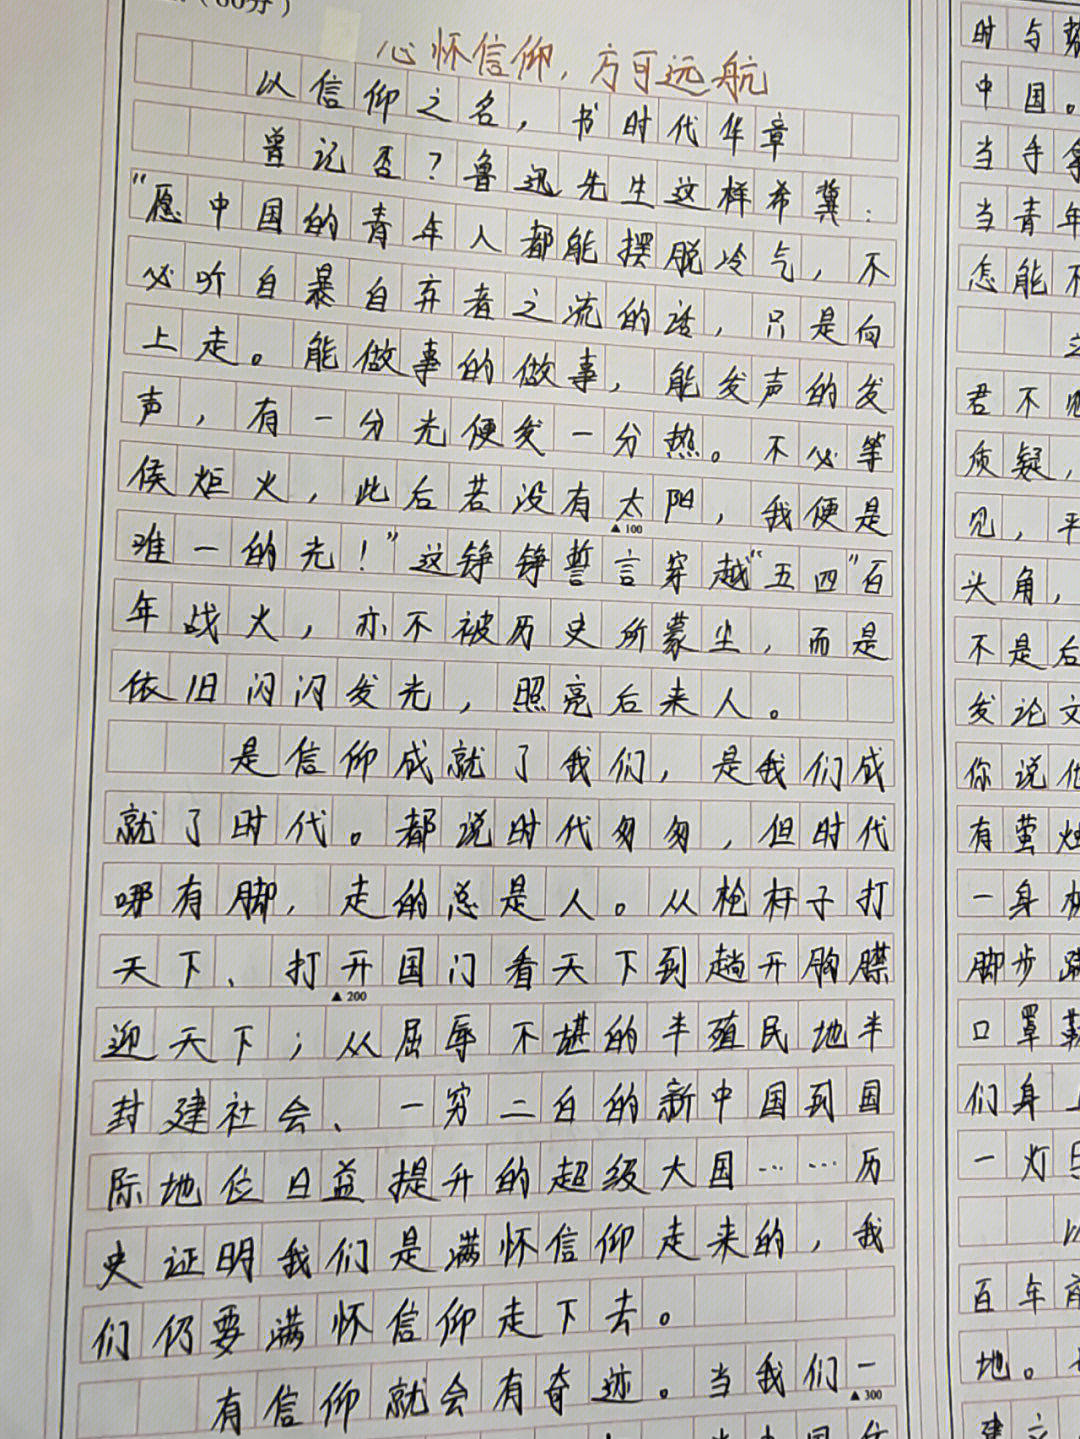 （60分）
心怀信仰，方可远航
以信仰之名，书时代华章
曾记否？鲁迅先生这样希冀：
“愿中国的青年人都能摆脱冷气，不
必听自暴自弃者之流的话，只是向
上走。能做事的做事，能发声的发
声，有一分光便发一分热。不必等
侯炬火，此后若没有太阳，我便是
▲100
唯一的光！”这铮铮誓言穿越“五四”百
年战火，亦不被历史所蒙尘，而是
依旧闪闪发光，照亮后来人。
是信仰成就了我们，是我们成
就了时代。都说时代匆匆，但时代
哪有脚，走的总是人。从枪杆子打
天下、打开国门看天下到趟开胸襟
▲200
迎天下；从屈辱不堪的半殖民地半
封建社会、一穷二白的新中国到国
际地位日益提升的超级大国……历
史证明我们是满怀信仰走来的，我
们仍要满怀信仰走下去。
有信仰就会有奇迹。当我们一
▲300
时与
中国。
当手拿
当青年
怎能不
君不见
质疑，
见，平
头角，
不是后
发论文
你说他
有萤烛
一身
脚步
口罩
们身上
一灯
以
百年
地。
建立